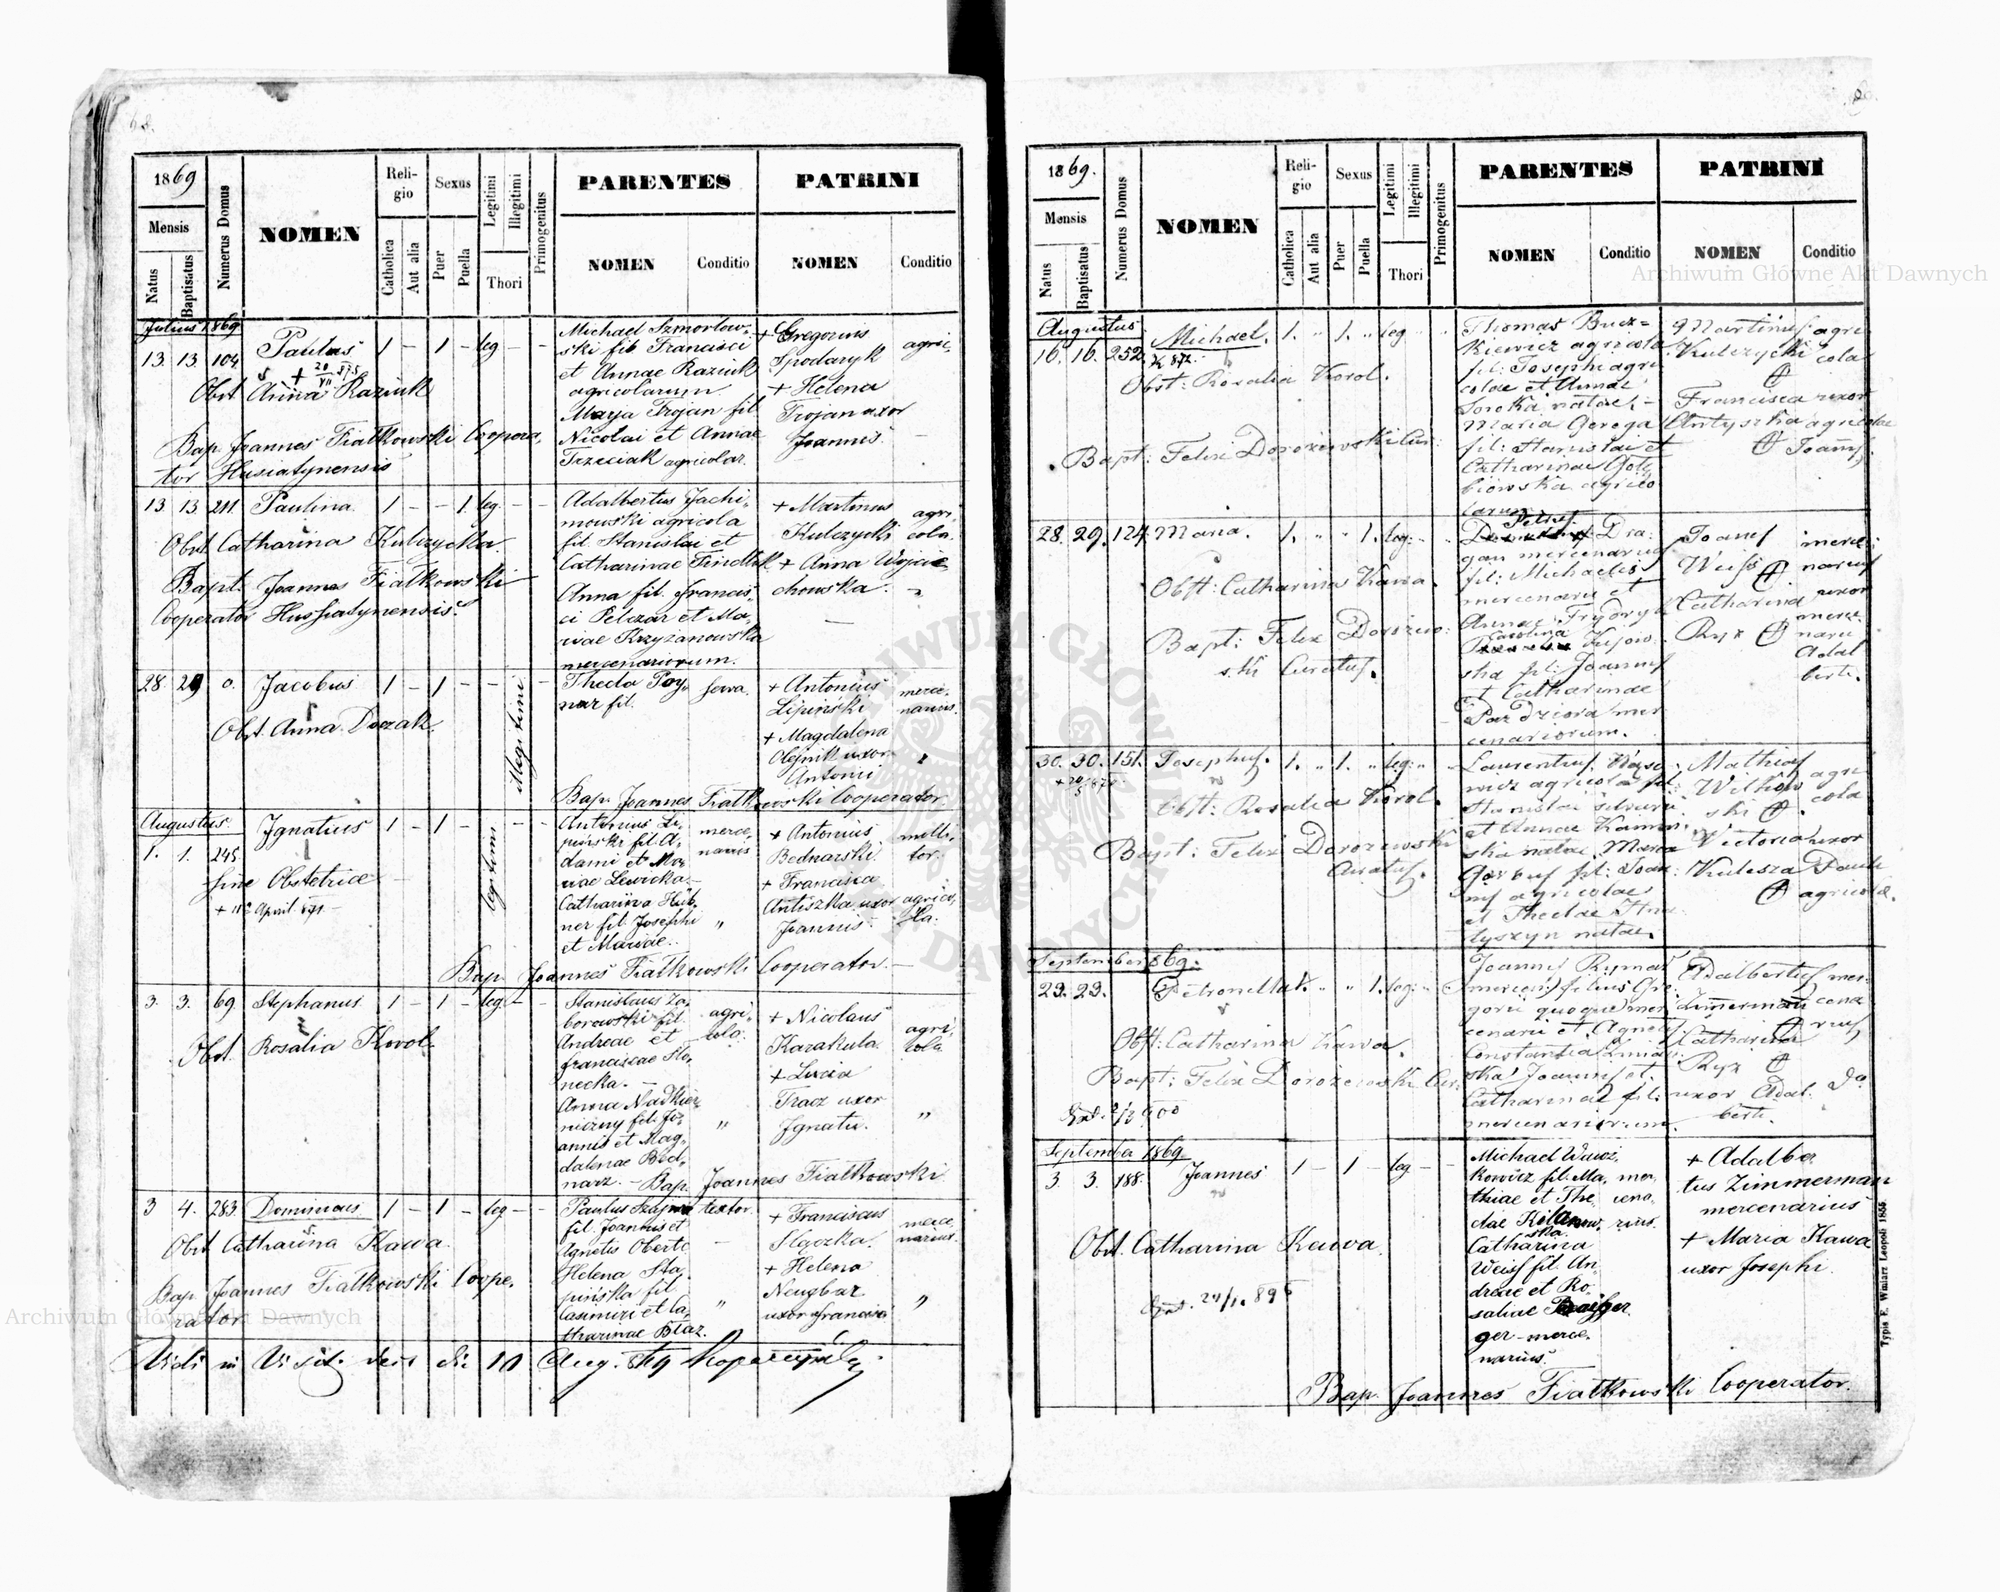 68.
1869
Mensis
Natus
Baptisatus
Numerus Domus
NOMEN
Religio
Catholica
Aut alia
Sexus
Puer
Puella
Legitimi
Illegitimi
Thori
Primogenitus
PARENTES
NOMEN
Conditio
PATRINI
NOMEN
Conditio
Julius 1869
13. 13. 104. Paulus 1 – 1 – leg – –
Obst. Anna Raziuk
Bap. Joannes Fiatkowski Coopera-
tor Husiatynensis
Michael Szmorlow-
ski fil. Francisci
et Annae Raziuk
agricolarum
Marya Trojan fil.
Nicolai et Annae
Trzeciak agricolar.
+ Gregorius
Spodaryk
+ Helena
Trojan uxor
Joannis.
agri-
13 13 211. Paulina 1 – – 1. leg. – –
Obst. Catharina Kulczycka.
Bapt. Joannes Fiatkowski
Cooperator Hussiatynensis.
Adalbertus Jachi-
mowski agricola
fil. Stanislai et
Catharinae Findlik
Anna fil. Francis-
ci Pelczar et Ma-
riae Krzyżanowska
mercenariorum.
+ Martinus
Kulczycki
+ Anna Wojcie-
chowska.
agri-
cola.
28. 29 0. Jacobus 1 – 1 – –
Obst. Anna Doczak.
illegitimi
Thecla Poy-
nar fil.
+ Antonius
Lipinski
+ Magdalena
Olejnik uxor
Antonii
merce-
narius.
Bap. Joannes Fiatkowski Cooperator
Augustus.
1. 1. 245. Ignatius 1 – 1 –
Sine Obstetrice
legitimi
Antonius Li-
pinski fil. A-
dami et Ma-
riae Lewicka.
Catharina Hüb-
ner fil. Josephi
et Mariae.
merce-
narius
+ Antonius
Bednarski.
+ Francisca
Antiszka uxor
Joannis.
moli-
tor.
agrico-
la.
Bap. Joannes Fiatkowski Cooperator.
3. 3. 69. Stephanus 1 – 1 – leg. –
Obst. Rosalia Korol.
Stanislaus Za-
borowski fil.
Andreae et
Franciscae Sło-
necka.
Anna Nadkier-
niczny fil. Jo-
annis et Mag-
dalenae Bed-
narz.
agri-
cola.
+ Nicolaus
Karakula.
+ Lucia
Tracz uxor
Ignatii.
agri-
cola
Bap. Joannes Fiatkowski
3 4. 283. Dominicus 1 – 1 – leg – –
Obst. Catharina Kawa.
Bap. Joannes Fiatkowski Coope-
rator
Paulus Szajna textor.
fil. Joannis et
Agnetis Oberto
Helena Sta-
pińska fil.
Casimiri et Ca-
tharinae Błaz.
+ Franciscus
Ślączka.
+ Helena
Neugbar
uxor Francisci
merce-
narius.
Vidi in Visit.
10 Aug. 869
1869.
Mensis
Natus
Baptisatus
Numerus Domus
NOMEN
Religio
Catholica
Aut alia
Sexus
Puer
Puella
Legitimi
Illegitimi
Thori
Primogenitus
PARENTES
NOMEN
Conditio
PATRINI
NOMEN
Conditio
Augustus
16. 16. 252. Michael. 1. 1. leg
Obst: Rosalia Korol.
Bapt: Felix Dorożewski Cur:
Thomas Bucz-
kiewicz agricola
fil: Josephi agri-
colae et Annae
Soroka natae,
Maria Gerega
fil: Stanislai et
Catharinae Goł-
biowska agrico
larum
Martinus
Kulczycki
Francisca uxor
Antyszka agricolae
Joannis
agri
cola
28. 29. 124. Maria. 1. 1. leg:
Obst: Catharina Kawa.
Bapt: Felix Dorożew-
ski Curatus.
Petrus Dra-
gan mercenarius
fil: Michaelis
mercenarii et
Annae Frydryk
Carolina Kijow-
ska fil: Joannis
et Catharinae
Pazdziora mer-
cenariorum.
Joanes
Weiss
Catharina uxor
Ryx
merce-
narius
merce-
narii
Adal
berti.
30. 30. 151. Josephus. 1. 1. leg:
Obst: Rosalia Korol.
Bapt: Felix Dorożewski
Curatus.
Laurentius
agricola fil:
Stanislai
et Annae
natae. Maria
Garbus fil: Joan-
nis agricolae
et Theclae
natae.
Mathias
Witkow-
ski
Victoria uxor
Kulesza
agricolae.
agri
cola
September 1869.
23. 23. Petronella 1. 1. leg:
Obst: Catharina Kawa.
Bapt: Felix Dorożewski Cur:
Joannes Rymar
mercen: filius Gre-
gorii quoque mer
cenarii et Agnetis
Constantia
Joannis et
Catharinae fil:
mercenariorum.
Adalbertus
Zimerman
Catharina
Ryx
uxor Adal-
berti.
mer-
cena
rius
September 1869.
3. 3. 188. Joannes 1 – 1 – leg – –
Obst. Catharina Kawa.
Michael Wawż-
kowicz fil. Ma-
thiae et The-
clae Kilanow-
ska.
Catharina
Weiss fil. An-
dreae et Ro-
saliae
ger – merce-
narius.
mer-
cena-
rius.
+ Adalber
tus Zimmerman
mercenarius
+ Maria Kawa
uxor Josephi.
Bap. Joannes Fiatkowski Cooperator.
Typis E. Winiarz Leopoli 1855
Archiwum Główne Akt Dawnych
Archiwum Główne Akt Dawnych
ARCHIWUM GŁÓWNE AKT DAWNYCH